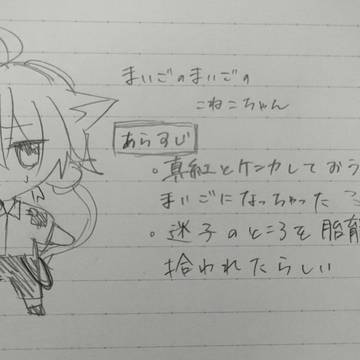 まいごのまいごの
こねこちゃん
あらすじ
・真紅とケンカしておう
まいごになっちゃった
・迷子のところを胎育
拾われたらしい